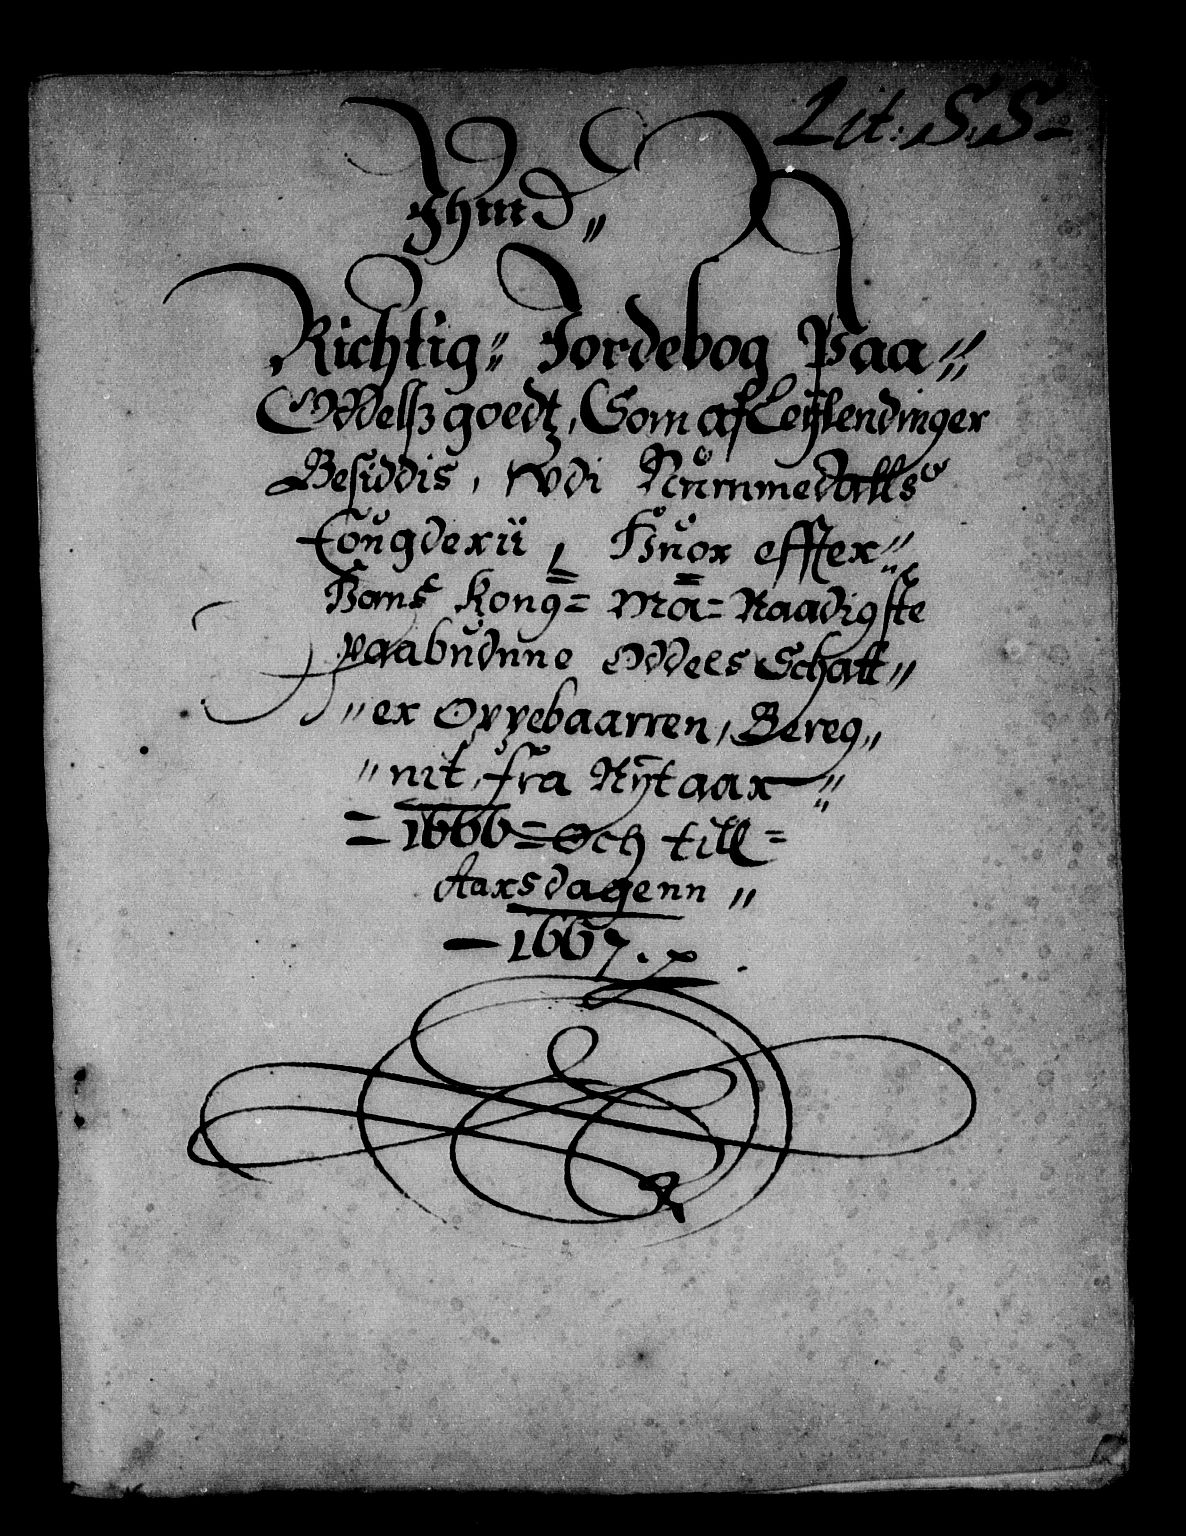 Lit: S.S=
Ihud„
Richtig„ Jordebog Paa„
Oddelsz goedtz, Som af Leylendinger
Besiddis, udi Nummedalls
fougderii, Huor effter„
Hans Kong= Ma= Naadigste
paabudnne Oddels Schatt„
„er Oppebaarren, Bereg„
„nit, fra Nytaar„
=1666= Och till=
Aarsdagenn„
—1667.